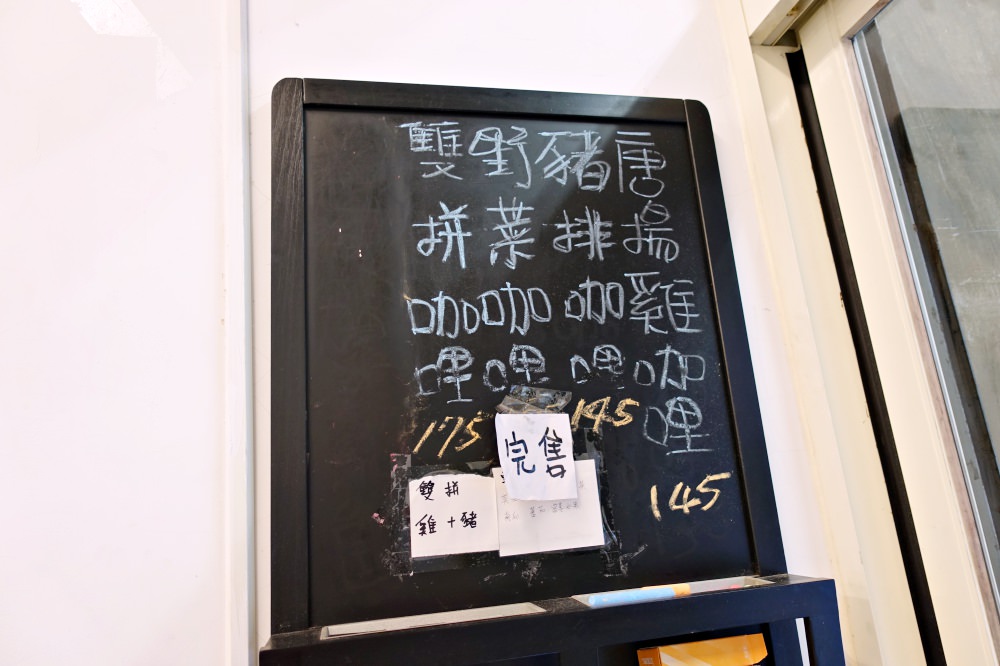 唐揚雞咖哩
145
豬排咖哩
145
野菜咖哩
完售
雙拼咖哩
175
雙拼
雞+豬